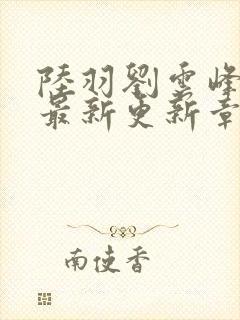 陸羽劉雲峰
最新更新章
南使香